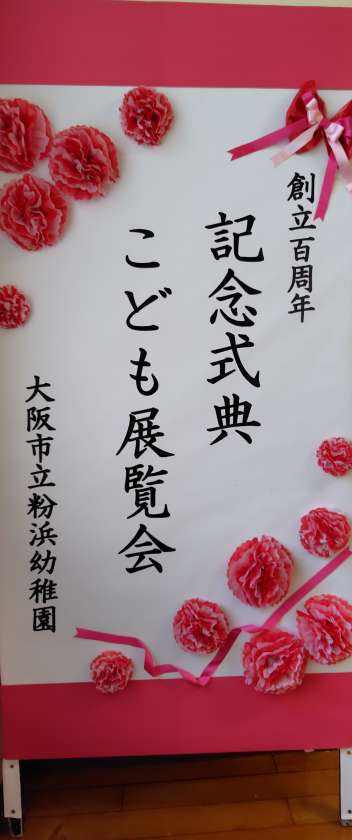 創立百周年
記念式典
こども展覧会
大阪市立粉浜幼稚園